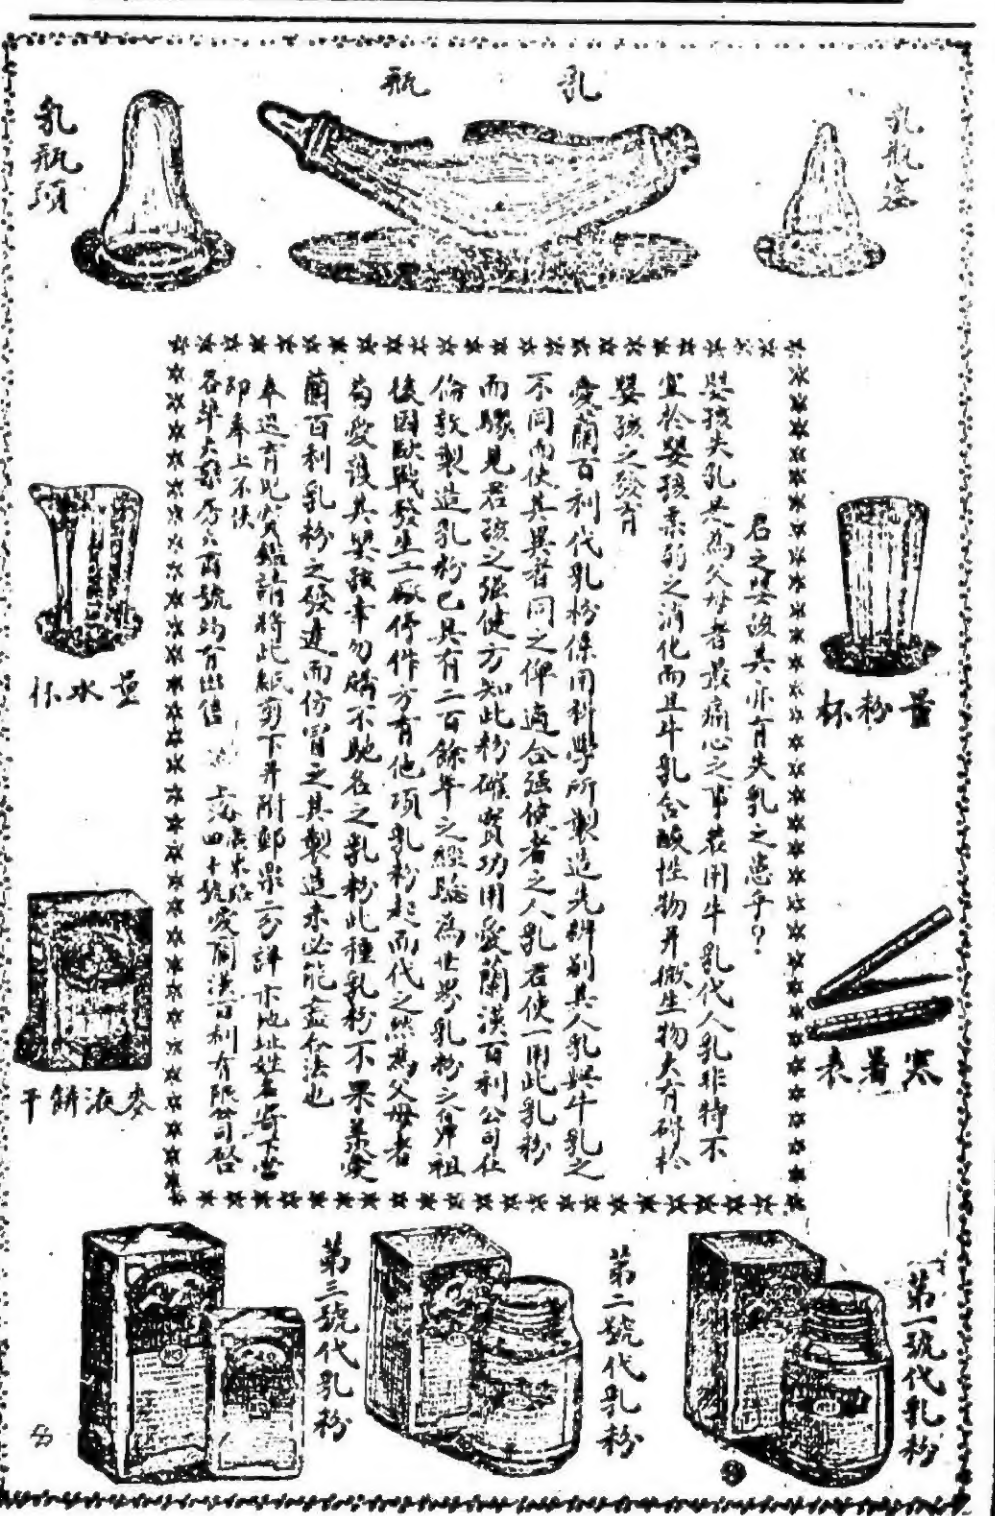 乳瓶
乳瓶頭
量粉杯
量水杯
寒暑表
麥液餅干
君之嬰孩其亦有失乳之患乎?
嬰孩失乳其為父母者最痛心之事若用牛乳代人乳非特不
宜於嬰孩柔弱之消化而且牛乳含酸性物并微生物大有碍於
嬰孩之發育
愛蘭百利代乳粉係用科學所製造先辨別其人乳與牛乳之
不同而使其異者同之俾適合强健者之人乳君使一用此乳粉
而驟見君孩之强健方知此粉確實功用愛蘭漢百利公司在
倫敦製造乳粉已具有二百餘年之經驗為世界乳粉之鼻祖
後因歐戰發生工廠停作方有他項乳粉起而代之然為父母者
苟愛護其嬰孩幸勿購不馳名之乳粉此種乳粉不果羨愛
蘭百利乳粉之發達而仿冒之其製造未必能盡合法也
奉送育兒寶鑑請將此紙剪下并附郵票二分詳示地址姓名寄下當
即奉上不悞
各華大藥房公司號均有出售
上海 四十號愛蘭漢百利有限公司啓
第一號代乳粉
第二號代乳粉
第三號代乳粉